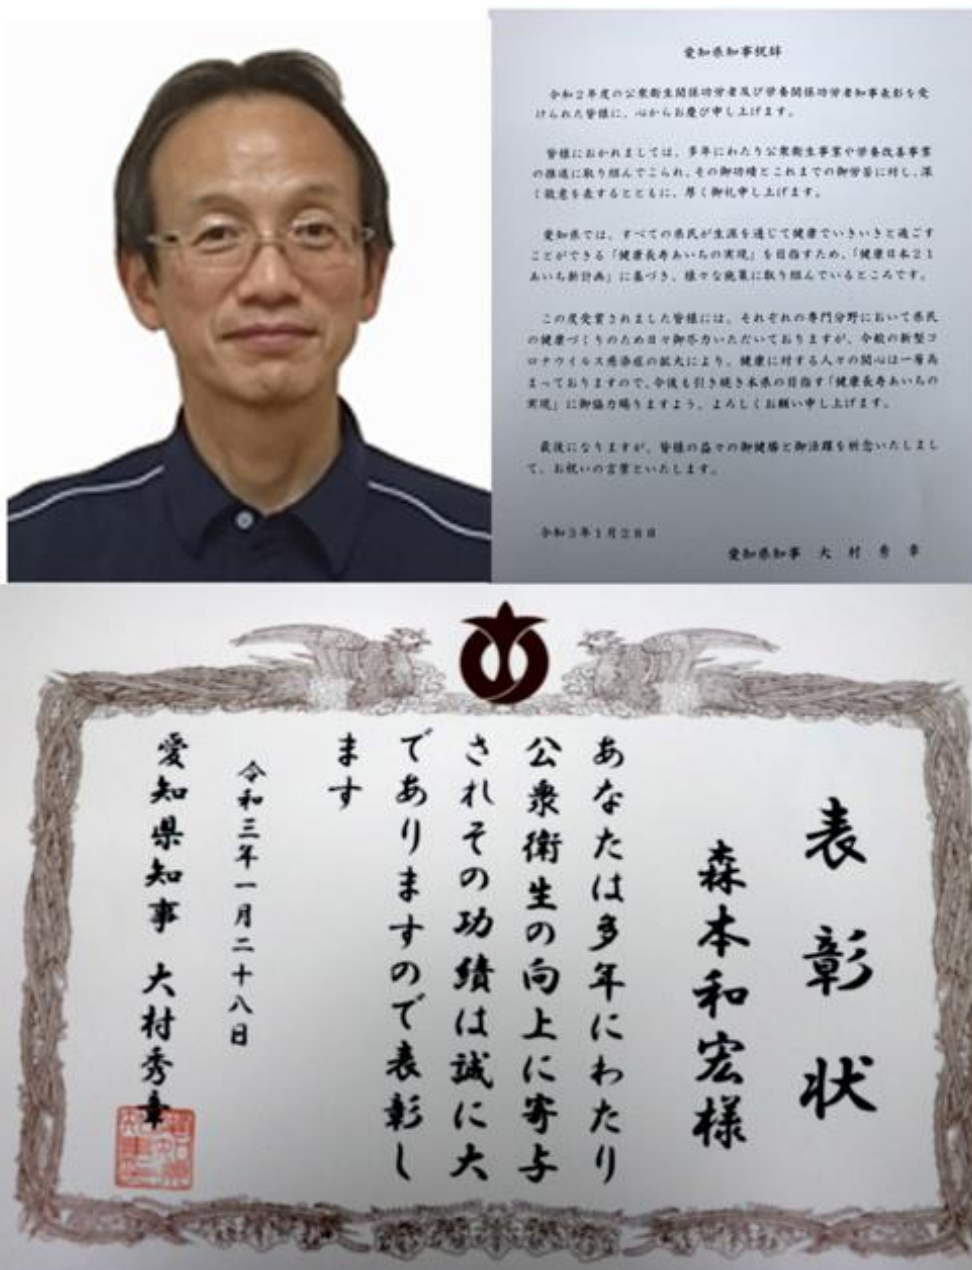 愛知県知事祝辞
令和2年度の公衆衛生関係功労者及び栄養関係功労者知事表彰を受
けられた皆様に、心からお慶び申し上げます。
皆様におかれましては、多年にわたり公衆衛生事業や栄養改善事業
の推進に取り組んでこられ、その御功績とこれまでの御労苦に対し、深
く敬意を表するとともに、厚く御礼申し上げます。
愛知県では、すべての県民が生涯を通じて健康でいきいきと過ごす
ことができる「健康長寿あいちの実現」を目指すため、「健康日本21
あいち新計画」に基づき、様々な施策に取り組んでいるところです。
この度受賞されました皆様には、それぞれの専門分野において県民
の健康づくりのため日々御尽力いただいておりますが、今般の新型コ
ロナウイルス感染症の拡大により、健康に対する人々の関心は一層高
まっておりますので、今後も引き続き本県の目指す「健康長寿あいちの
実現」に御協力賜りますよう、よろしくお願い申し上げます。
最後になりますが、皆様の益々の御健勝と御活躍を祈念いたしまし
て、お祝いの言葉といたします。
令和3年1月28日
愛知県知事 大村秀章
表彰状
森本和宏様
あなたは多年にわたり
公衆衛生の向上に寄与
されその功績は誠に大
でありますので表彰し
ます
令和三年一月二十八日
愛知県知事 大村秀章